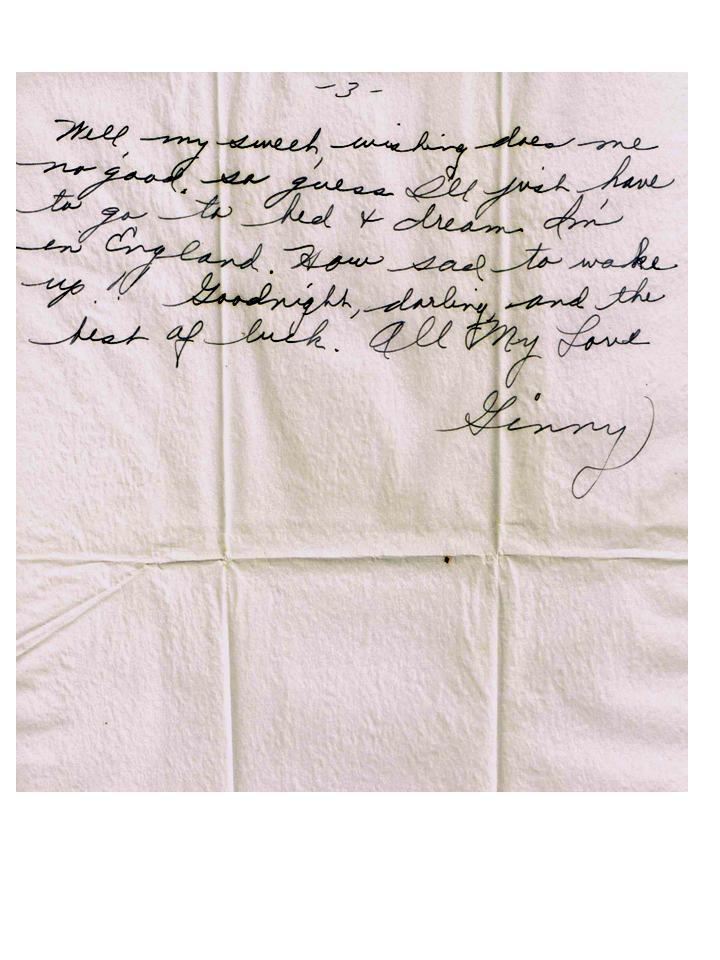 -3-
Well my sweet, wishing does me
no good, so guess I'll just have
to go to bed & dream I'm
in England. How sad to wake
up!! Goodnight, darling, and the
best of luck. All My Love
Ginny